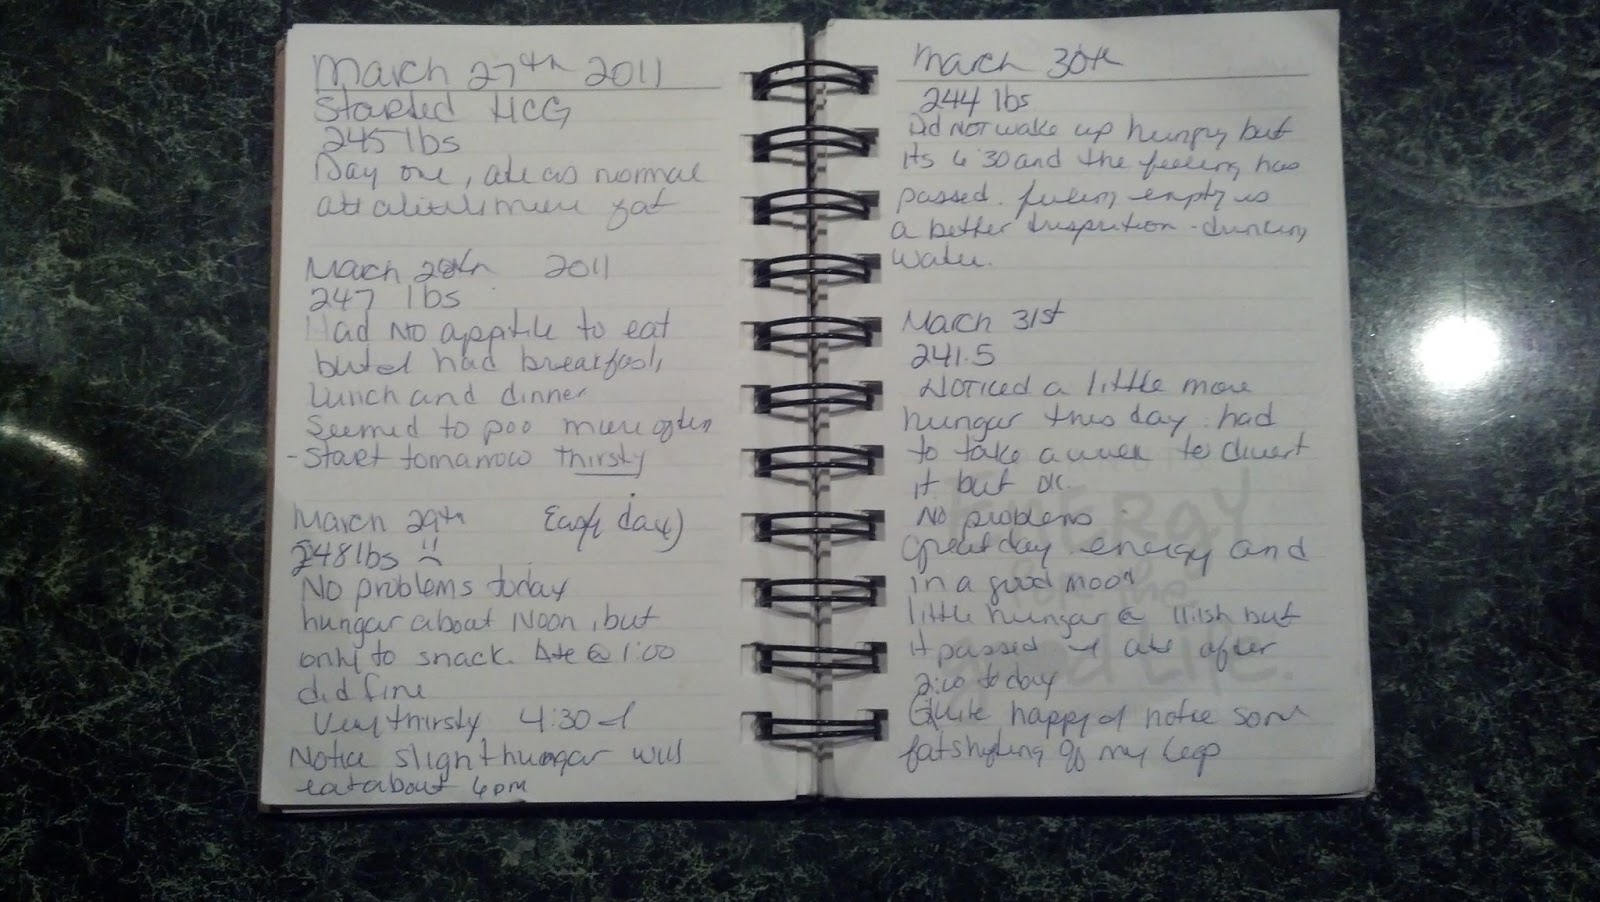 March 27th 2011
Started HCG
245 lbs
Day one, ate as normal
ate a little more fat
March 28th 2011
247 lbs
Had No apptite to eat
but I had breakfast,
Lunch and dinner
Seemed to poo more often
- Start tomarrow thirsty
March 29th (Each day)
248 lbs
No problems today
hungar about Noon, but
only to snack. Ate @ 1:00
did fine
Very thirsty 4:30 I
Notice slight hungar will
eat about 6pm
March 30th
244 lbs
Did NOT wake up hungry but
its 6:30 and the feeling has
passed. feeling empty is
a better - drinking
water.
March 31st
241.5
Noticed a little more
hungar this day. had
to take a to divert
it but ok.
No problems
Great day. energy and
in a good mood
little hungar @ 11ish but
it passed I ate after
2:00 today
Quite happy I notice some
fat of my legs
ENERGY
for the
good Life.